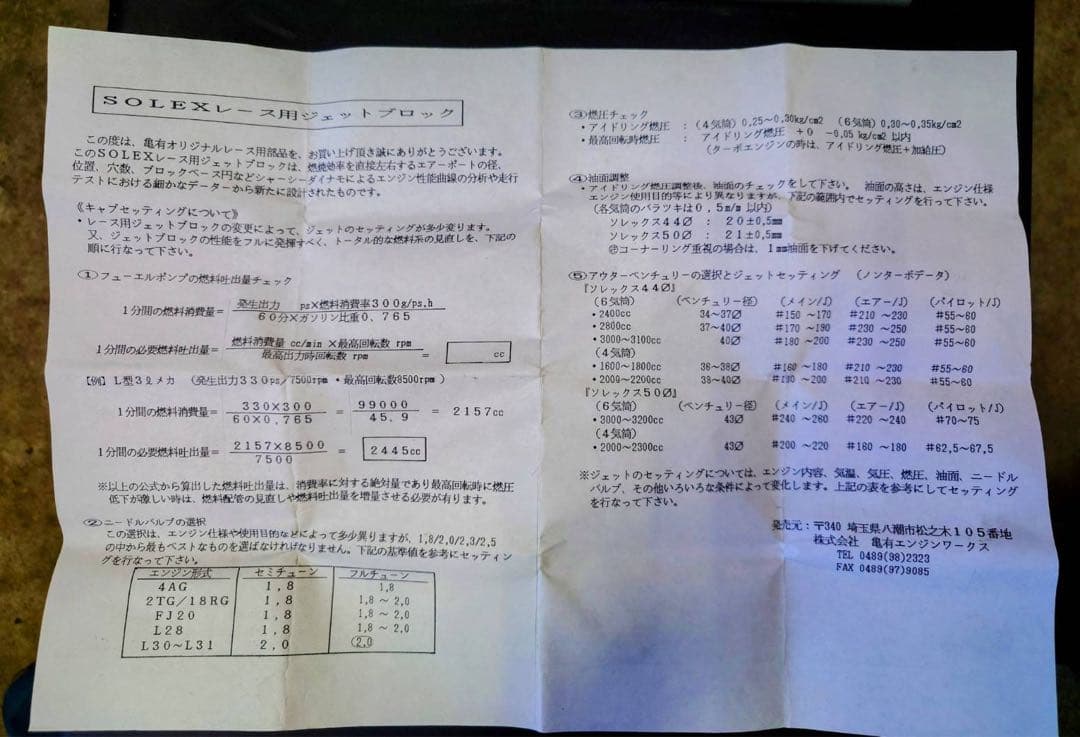 SOLEXレース用ジェットブロック
この度は、亀有オリジナルレース用部品を、お買い上げ頂き誠にありがとうございます。
このSOLEXレース用ジェットブロックは、燃焼効率を直接左右するエアーポートの径、
位置、穴数、ブロックベース円などシャーシーダイナモによるエンジン性能曲線の分析や走行
テストにおける細かなデーターから新たに設計されたものです。
《キャブセッティングについて》
・レース用ジェットブロックの変更によって、ジェットのセッティングが多少変ります。
又、ジェットブロックの性能をフルに発揮すべく、トータル的な燃料系の見直しを、下記の
順に行なって下さい。
①フューエルポンプの燃料吐出量チェック
1分間の燃料消費量= 発生出力 ps×燃料消費率300g/ps.h
60分×ガソリン比重0,765
1分間の必要燃料吐出量= 燃料消費量 cc/min ×最高回転数 rpm
最高出力時回転数 rpm = cc
【例】L型3ℓメカ (発生出力330ps/7500rpm ・最高回転数8500rpm)
1分間の燃料消費量= 330×300 = 99000 = 2157cc
60×0,765 45.9
1分間の必要燃料吐出量= 2157×8500 = 2445cc
7500
※以上の公式から算出した燃料吐出量は、消費率に対する絶対量であり最高回転時に燃圧
低下が激しい時は、燃料配管の見直しや燃料吐出量を増量させる必要が有ります。
②ニードルバルブの選択
この選択は、エンジン仕様や使用目的などによって多少異りますが、1,8/2,0/2,3/2,5
の中から最もベストなものを選ばなければなりません。下記の基準値を参考にセッティン
グを行なって下さい。
エンジン形式 セミチューン フルチューン
4AG 1,8 1,8
2TG/18RG 1,8 1,8 ~ 2,0
FJ20 1,8 1,8 ~ 2,0
L28 1,8 1,8 ~ 2,0
L30~L31 2,0 2,0
③燃圧チェック
・アイドリング燃圧 : (4気筒) 0,25~0,30kg/cm2 (6気筒) 0,30~0,35kg/cm2
・最高回転時燃圧 : アイドリング燃圧 +0 -0,05 kg/cm2 以内
(ターボエンジンの時は、アイドリング燃圧+加給圧)
④油面調整
・アイドリング燃圧調整後、油面のチェックをして下さい。 油面の高さは、エンジン仕様
エンジン使用目的等により異なりますが、下記の範囲内でセッティングを行って下さい。
(各気筒のバラツキは0,5m/m 以内)
ソレックス44Ø : 20±0,5mm
ソレックス50Ø : 21±0,5mm
㊟コーナーリング重視の場合は、1mm油面を下げてください。
⑤アウターベンチュリーの選択とジェットセッティング (ノンターボデータ)
『ソレックス44Ø』
(6気筒) (ベンチュリー径) (メイン/J) (エアー/J) (パイロット/J)
・2400cc 34~37Ø #150 ~170 #210 ~230 #55~60
・2800cc 37~40Ø #170 ~190 #230 ~250 #55~60
・3000~3100cc 40Ø #180 ~200 #230 ~250 #55~60
(4気筒)
・1600~1800cc 36~38Ø #160 ~180 #210 ~230 #55~60
・2000~2200cc 38~40Ø #180 ~200 #210 ~230 #55~60
『ソレックス50Ø』
(6気筒) (ベンチュリー径) (メイン/J) (エアー/J) (パイロット/J)
・3000~3200cc 43Ø #240 ~260 #220 ~240 #70~75
(4気筒)
・2000~2300cc 43Ø #200 ~220 #160 ~180 #62,5~67,5
※ジェットのセッティングについては、エンジン内容、気温、気圧、燃圧、油面、ニードル
バルブ、その他いろいろな条件によって変化します。上記の表を参考にしてセッティング
を行なって下さい。
発売元:〒340 埼玉県八潮市松之木105番地
株式会社 亀有エンジンワークス
TEL 0489(98)2323
FAX 0489(97)9085